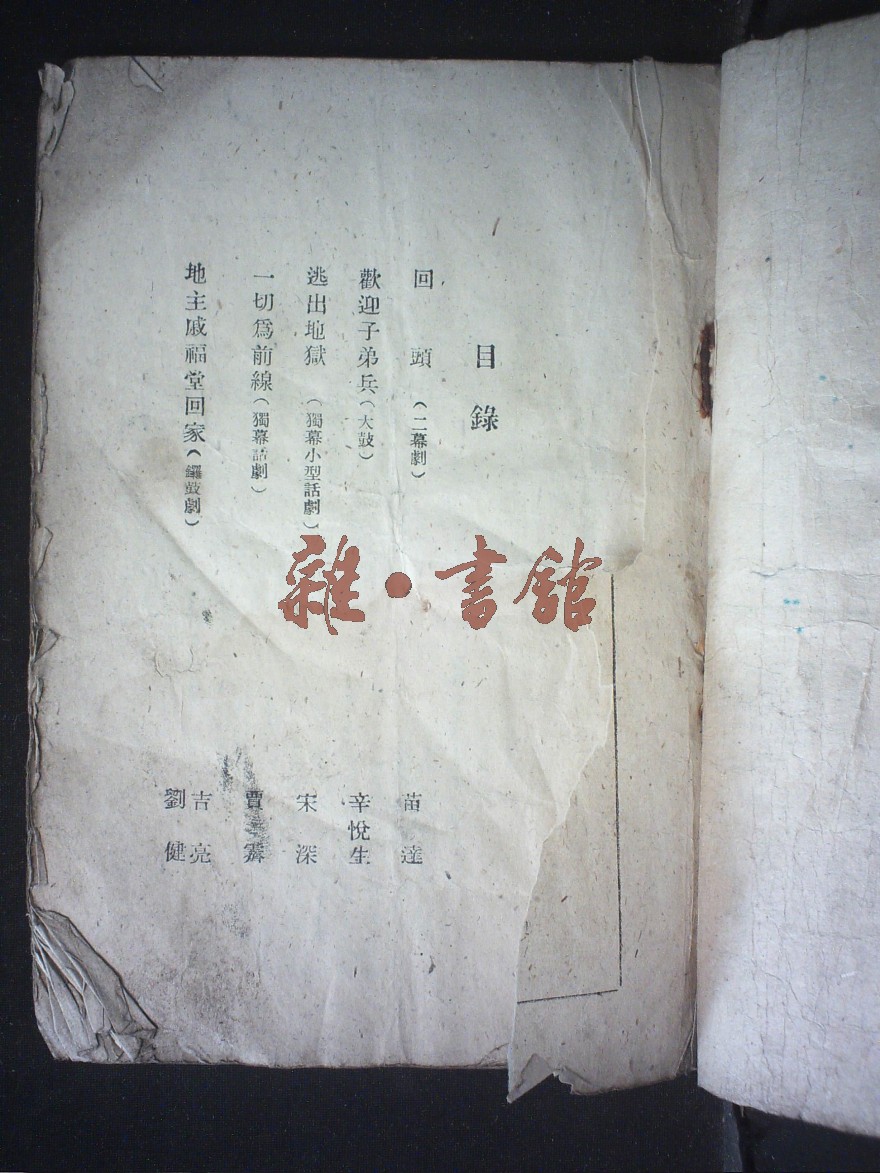 目錄
回頭(二幕劇) 苗達
歡迎子弟兵(大鼓) 辛悅生
逃出地獄(獨幕小型話劇) 宋深
一切爲前線(獨幕話劇) 賈霽
地主戚福堂回家(鑼鼓劇) 吉亮
劉健
雜·書館